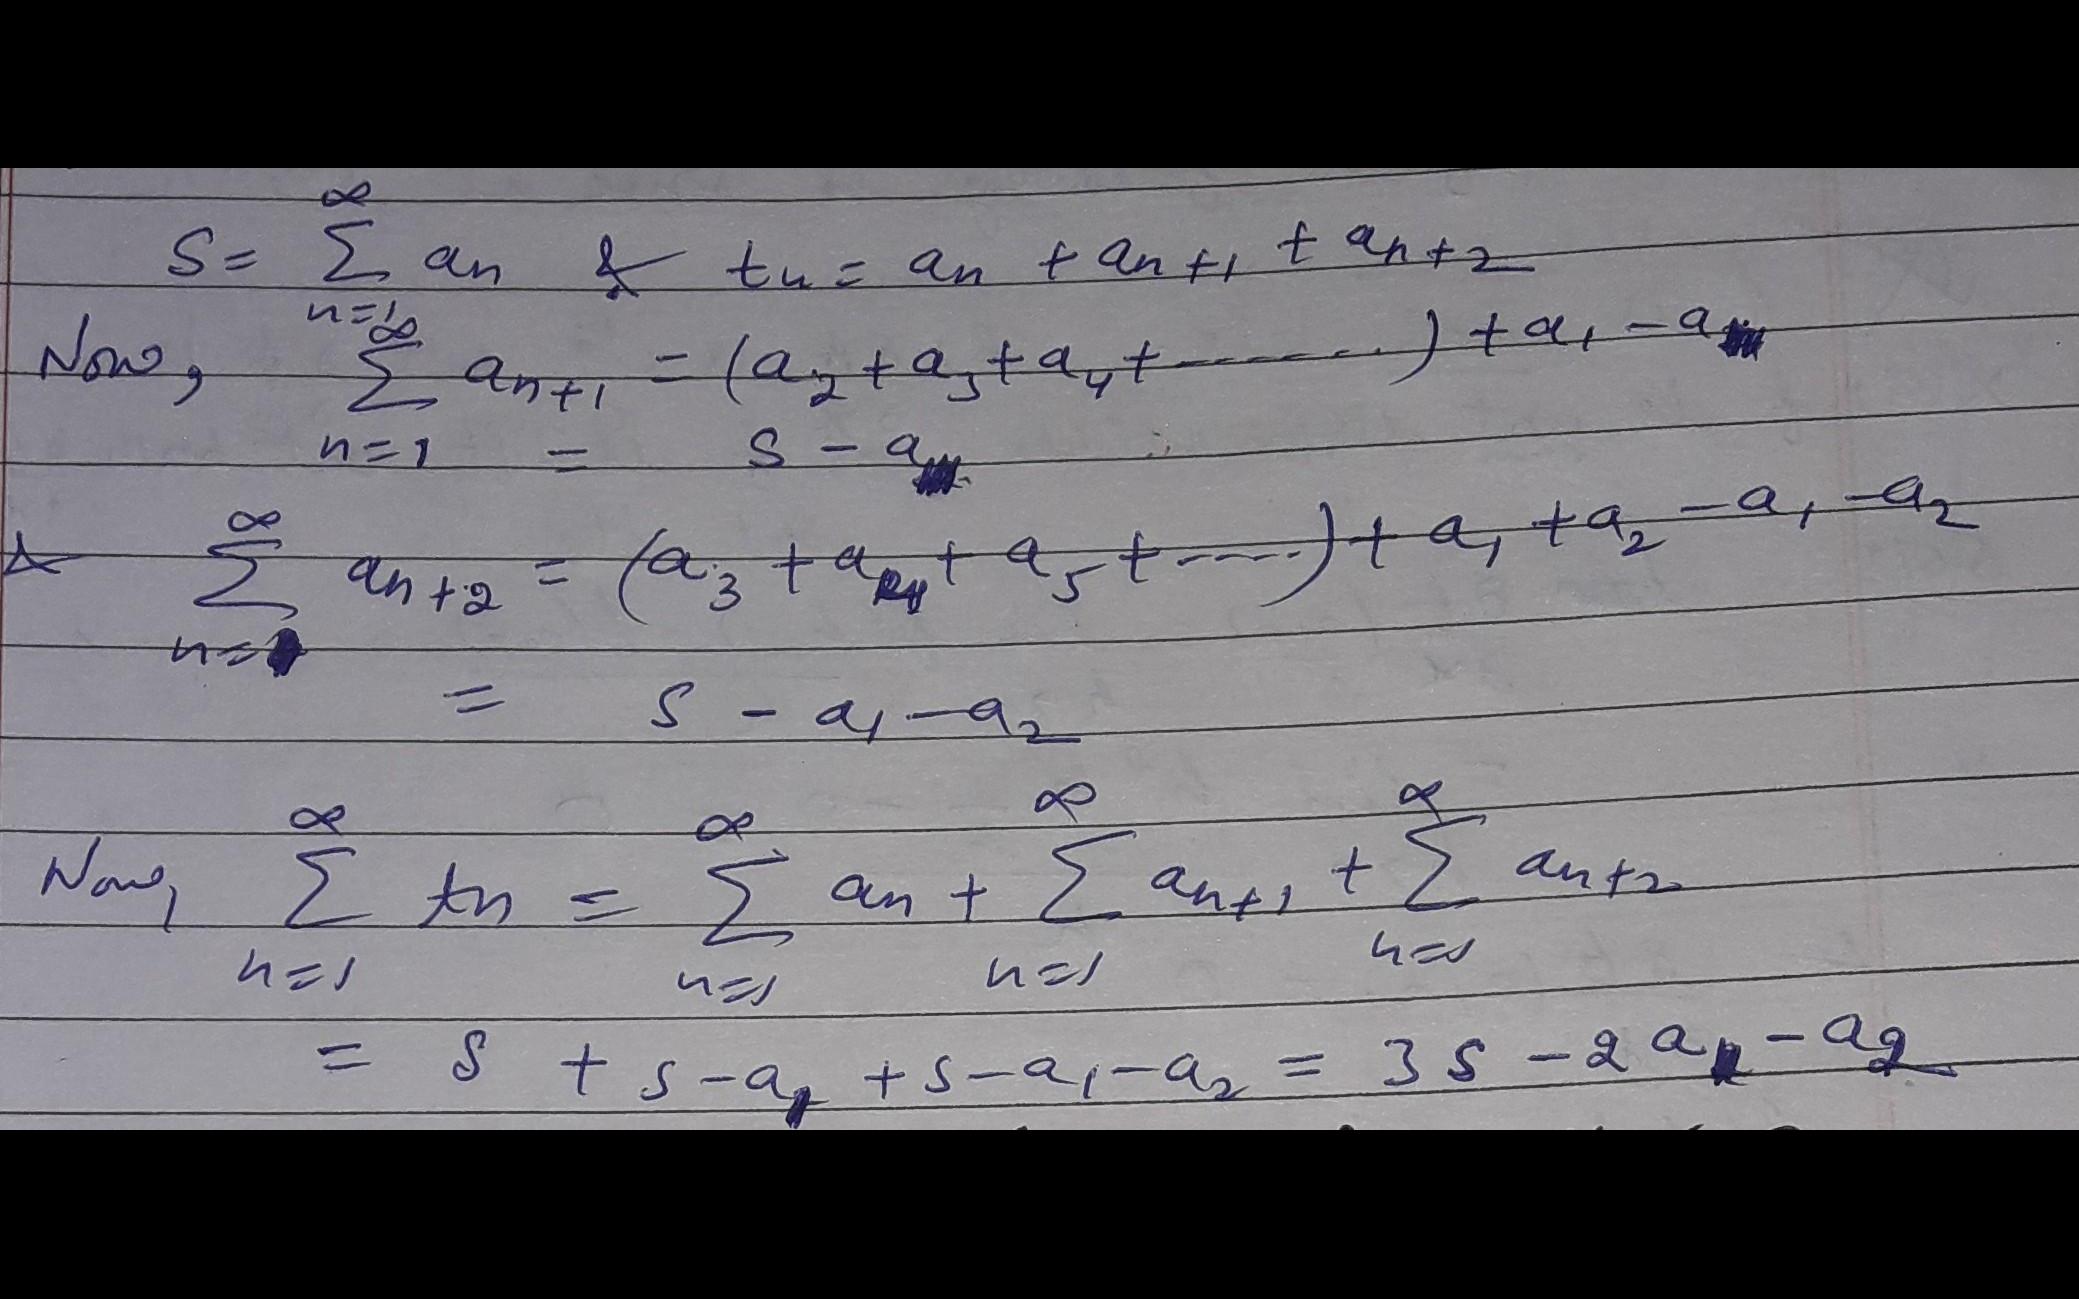 S = ∞ Σ n=1 an & tn = an + an+1 + an+2
Now, ∞ Σ n=1 an+1 = (a2 + a3 + a4 + -------) + a1 - a
= S - a
& ∞ Σ n= an+2 = (a3 + a4 + a5 + ----) + a1 + a2 - a1 - a2
= S - a1 - a2
Now, ∞ Σ n=1 tn = ∞ Σ n=1 an + ∞ Σ n=1 an+1 + ∞ Σ n=1 an+2
= S + S - a1 + S - a1 - a2 = 3S - 2a1 - a2